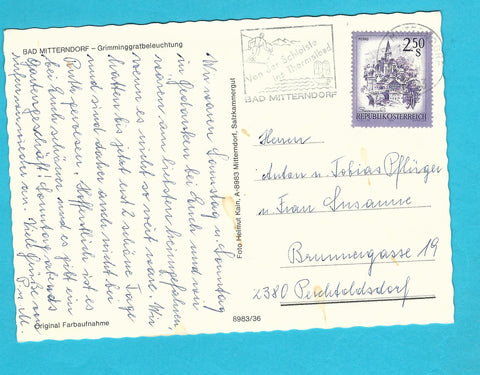 BAD MITTERNDORF – Grimminggratbeleuchtung
Wir waren Samstag u. Sonntag
in Gedanken bei Euch und wir
wären am liebsten heimgefahren
wenn es nicht so weit wäre. Wir
hatten bis jetzt erst 2 schöne Tage
und sind daher auch nicht bei
Ruth gewesen. Hoffentlich ist es
bei Euch schöner und es geht ein
Gartengeschäft! Sonntag abends
wir an. Viel Grüße von
Original Farbaufnahme
Foto Helmut Kain, A-8983 Mitterndorf, Salzkammergut
8983/36
Von der Schipiste
ins Thermalbad
BAD MITTERNDORF
2.50 S
REPUBLIK ÖSTERREICH
Herrn
Anton u. Tobias Pflüger
u. Frau Susanne
Brunnergasse 19
2380 Perchtoldsdorf